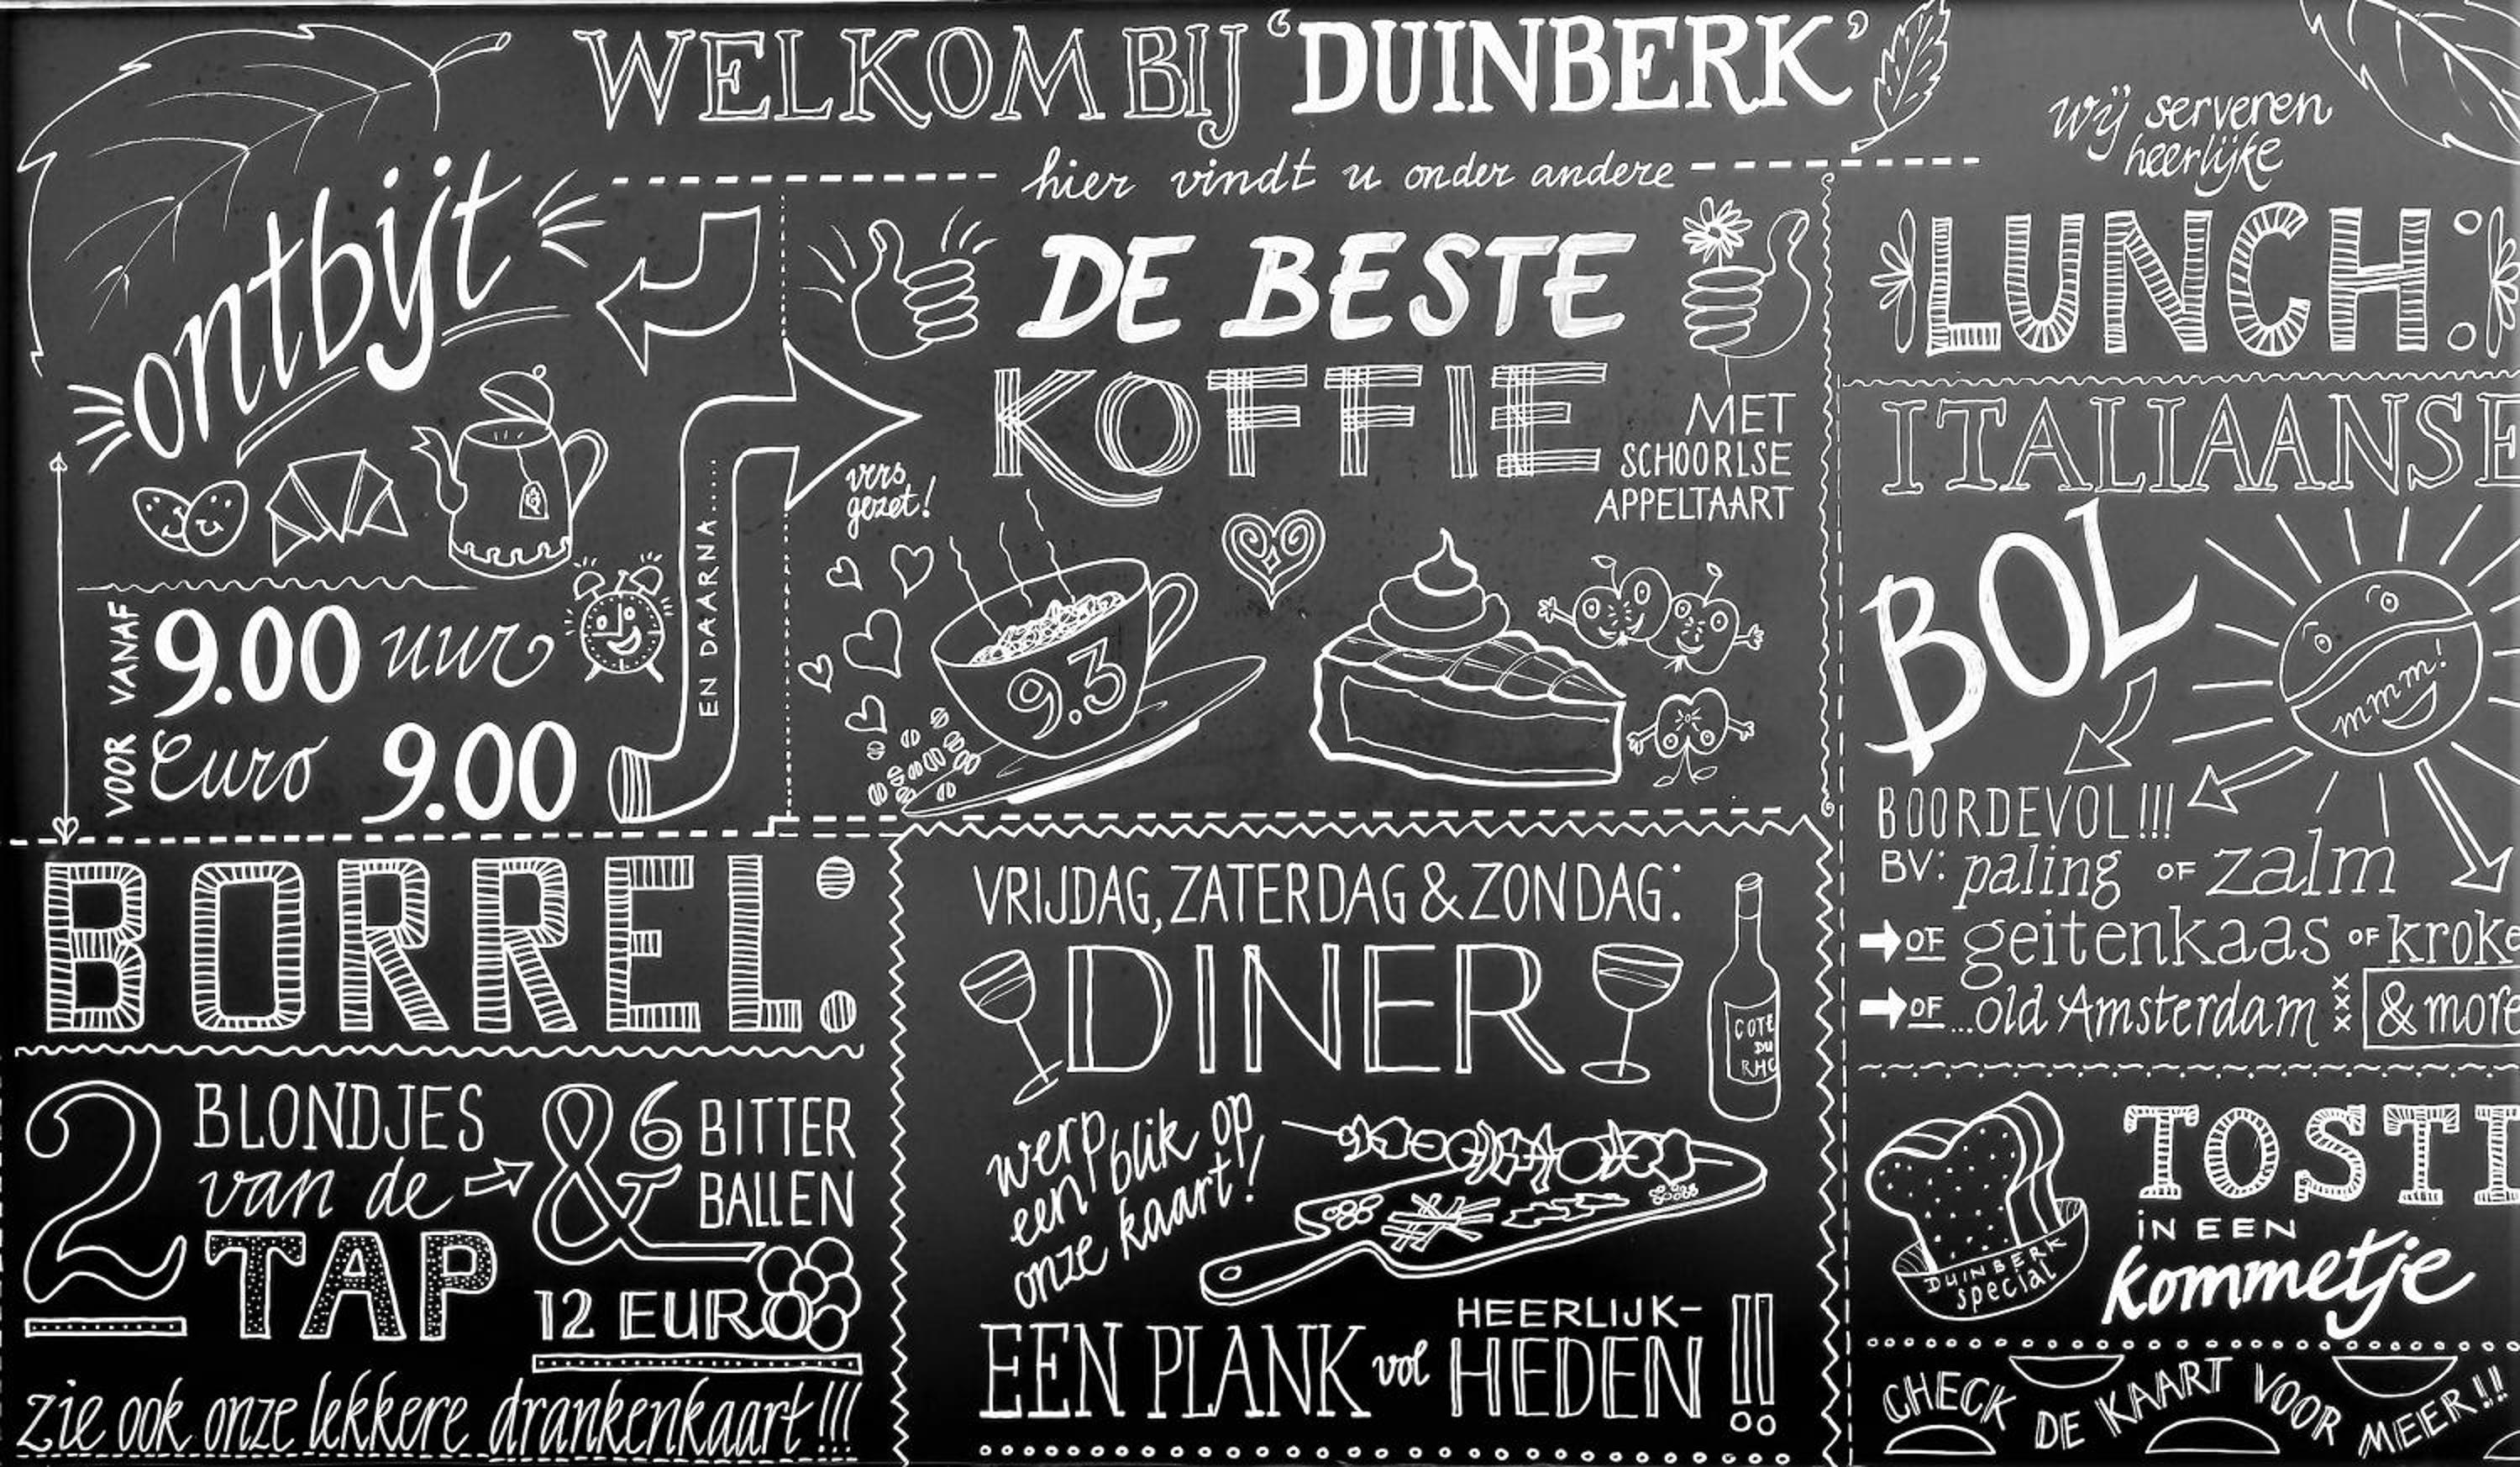 WELKOM BIJ 'DUINBERK'
hier vindt u onder andere
ontbijt
VANAF 9.00 uur
VOOR Euro 9.00
EN DAARNA.....
DE BESTE
KOFFIE
MET
SCHOORLSE
APPELTAART
vers
gezet!
9.3
wij serveren
heerlijke
LUNCH:
ITALIAANSE
BOL
mmm!
BOORDEVOL!!!
BV: paling OF zalm
OF geitenkaas OF kroke
OF ...old Amsterdam xxx & more
TOSTI
IN EEN
kommetje
DUINBERK
special
CHECK DE KAART VOOR MEER!!
BORREL:
2 BLONDJES
van de
TAP
& 6 BITTER
BALLEN
12 EURO
zie ook onze lekkere drankenkaart!!!
VRIJDAG, ZATERDAG & ZONDAG:
DINER
COTE
DU
RHO
werp blik op
een
onze kaart!
EEN PLANK vol HEERLIJK-
HEDEN!!